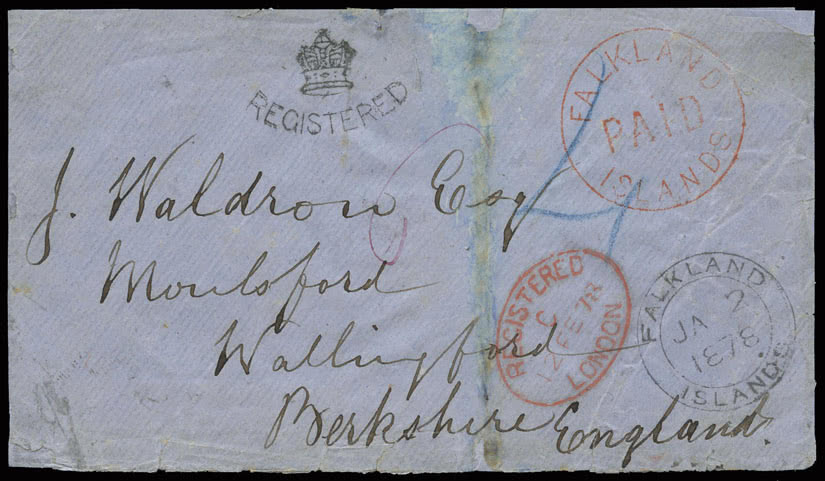 REGISTERED
FALKLAND ISLANDS
PAID
J. Waldron Esq
Moulsford
Wallingford
Berkshire England.
REGISTERED LONDON
C
12 FE 78
FALKLAND ISLANDS
JA
1878